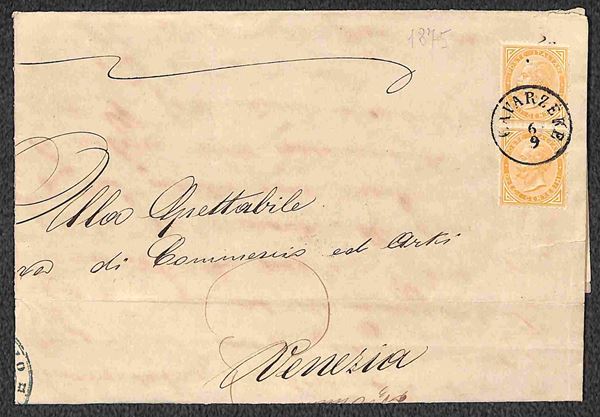 1875
CAVARZERE
6
9
Alla Spettabile
di Commercio ed Arti
Venezia